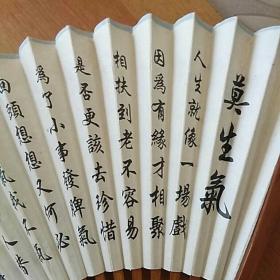 莫生氣
人生就像一場戲
因為有緣才相聚
相扶到老不容易
是否更該去珍惜
為了小事發脾氣
回頭想想又何必